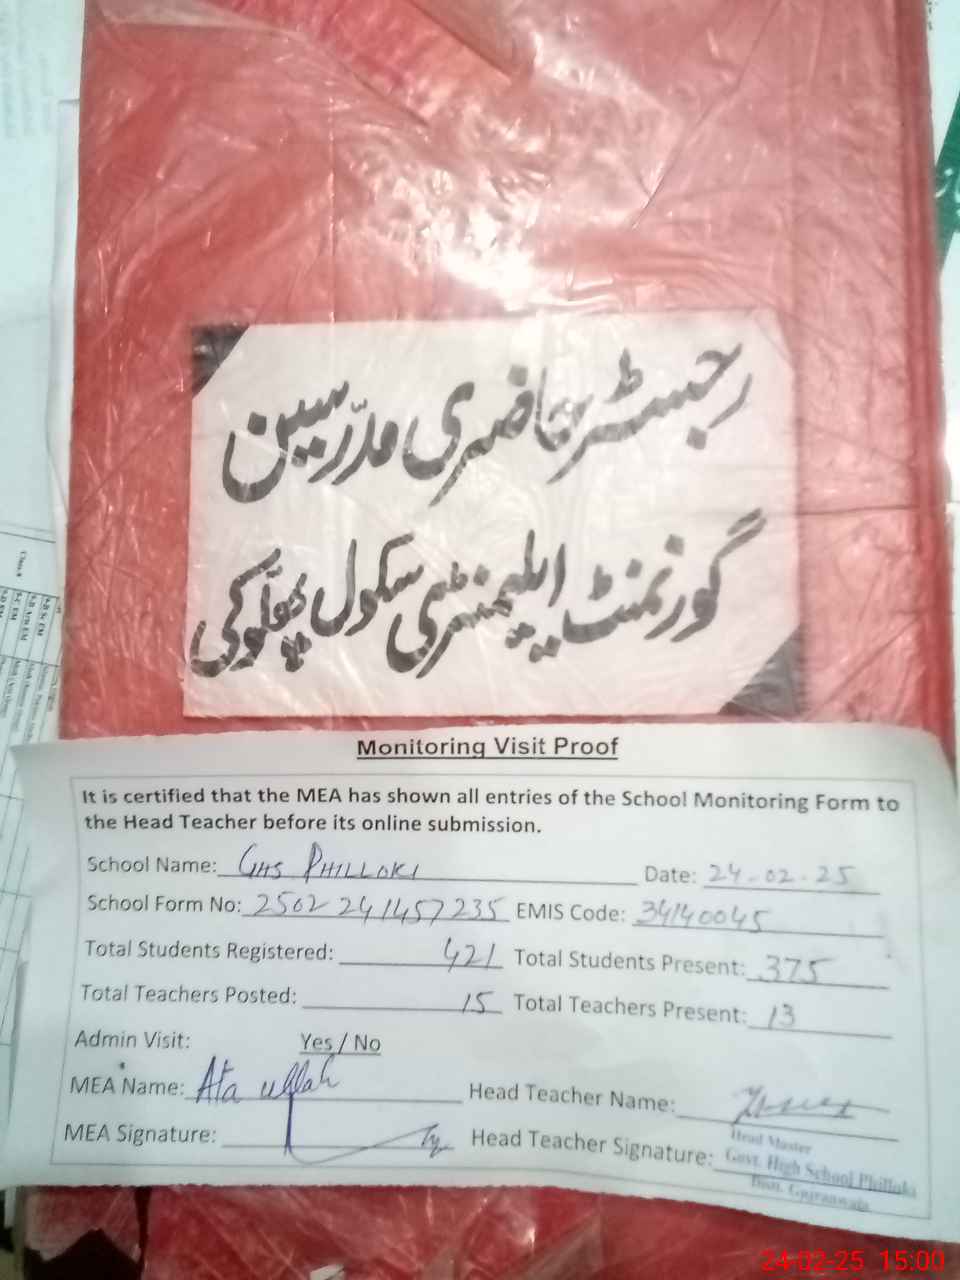 رجسٹر حاضری مدرّسین
گورنمنٹ ایلیمنٹری سکول پھلوکی
Monitoring Visit Proof
It is certified that the MEA has shown all entries of the School Monitoring Form to
the Head Teacher before its online submission.
School Name: GHS PHILLOKI Date: 24-02-25
School Form No: 2502241457235 EMIS Code: 34140045
Total Students Registered: 421 Total Students Present: 375
Total Teachers Posted: 15 Total Teachers Present: 13
Admin Visit: Yes / No
MEA Name: Ata ullah Head Teacher Name:
MEA Signature: Head Teacher Signature:
Head Master
Govt. High School Philloki
Distt. Gujranwala
Class 8
24-02-25 15:00